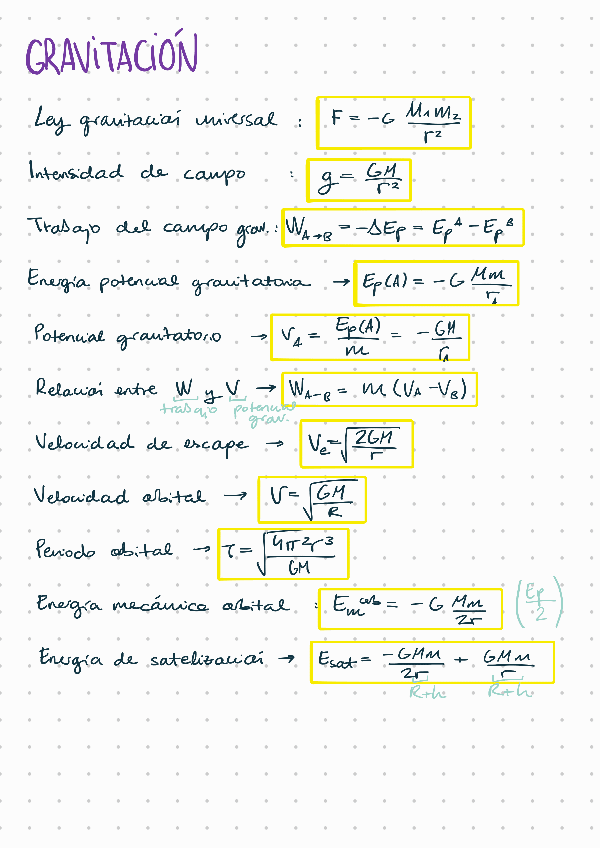 GRAVITACIÓN
Ley gravitación universal : F = -G M₁m₂/r²
Intensidad de campo : g = GM/r²
Trabajo del campo grav. : W_A→B = -ΔEp = Ep^A - Ep^B
Energía potencial gravitatoria → Ep(A) = -G Mm/r_A
Potencial gravitatorio → V_A = Ep(A)/m = -GM/r_A
Relación entre W y V → W_A-B = m (V_A - V_B)
trabajo potencial
grav.
Velocidad de escape → Ve = √(2GM/r)
Velocidad orbital → V = √(GM/R)
Periodo orbital → T = √(4π²r³/GM)
Energía mecánica orbital : Em^orb = -G Mm/2r (Ep/2)
Energía de satelización → Esat = -GMm/2r + GMm/r
R+h R+h